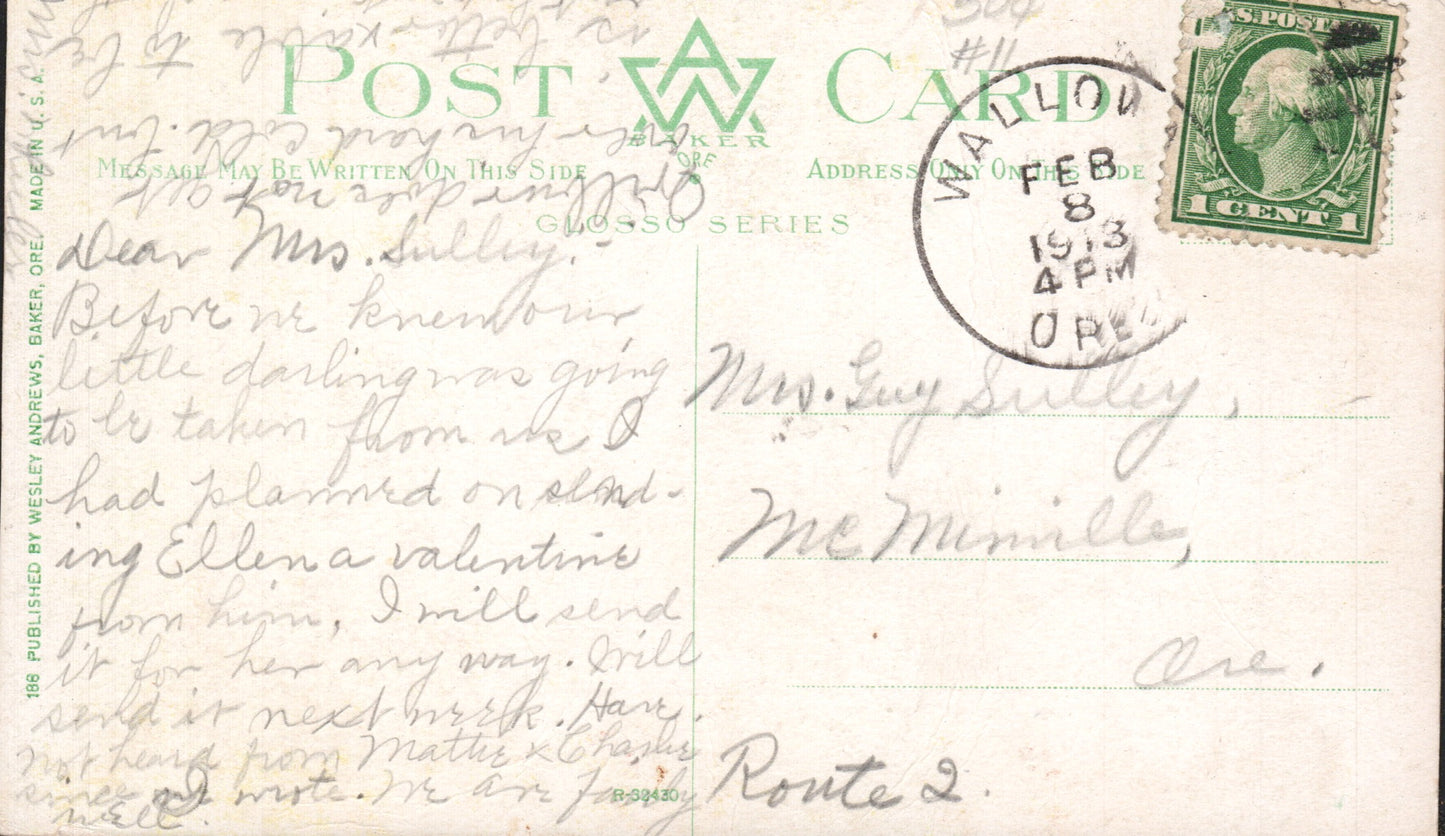 POST CARD
AW
BAKER
ORE
#11
MESSAGE MAY BE WRITTEN ON THIS SIDE
ADDRESS ONLY ON THIS SIDE
GLOSSO SERIES
WALLOWA
FEB
8
1913
4 PM
ORE
U.S. POSTAGE
1 CENT 1
Dear Mrs. Sulley:-
Before we knew our
little darling was going
to be taken from us I
had planned on send-
ing Ellen a valentine
from him, I will send
it for her any way. Will
send it next week. Have
not heard from Mattie & Charlie
since I wrote. We are fairly
well.
Orillowr does not get
over his hard cold. but
is better. able to be
Mrs. Guy Sulley,
Mc Minnville,
Ore.
Route 2.
188 PUBLISHED BY WESLEY ANDREWS, BAKER, ORE. MADE IN U.S.A.
R-32430